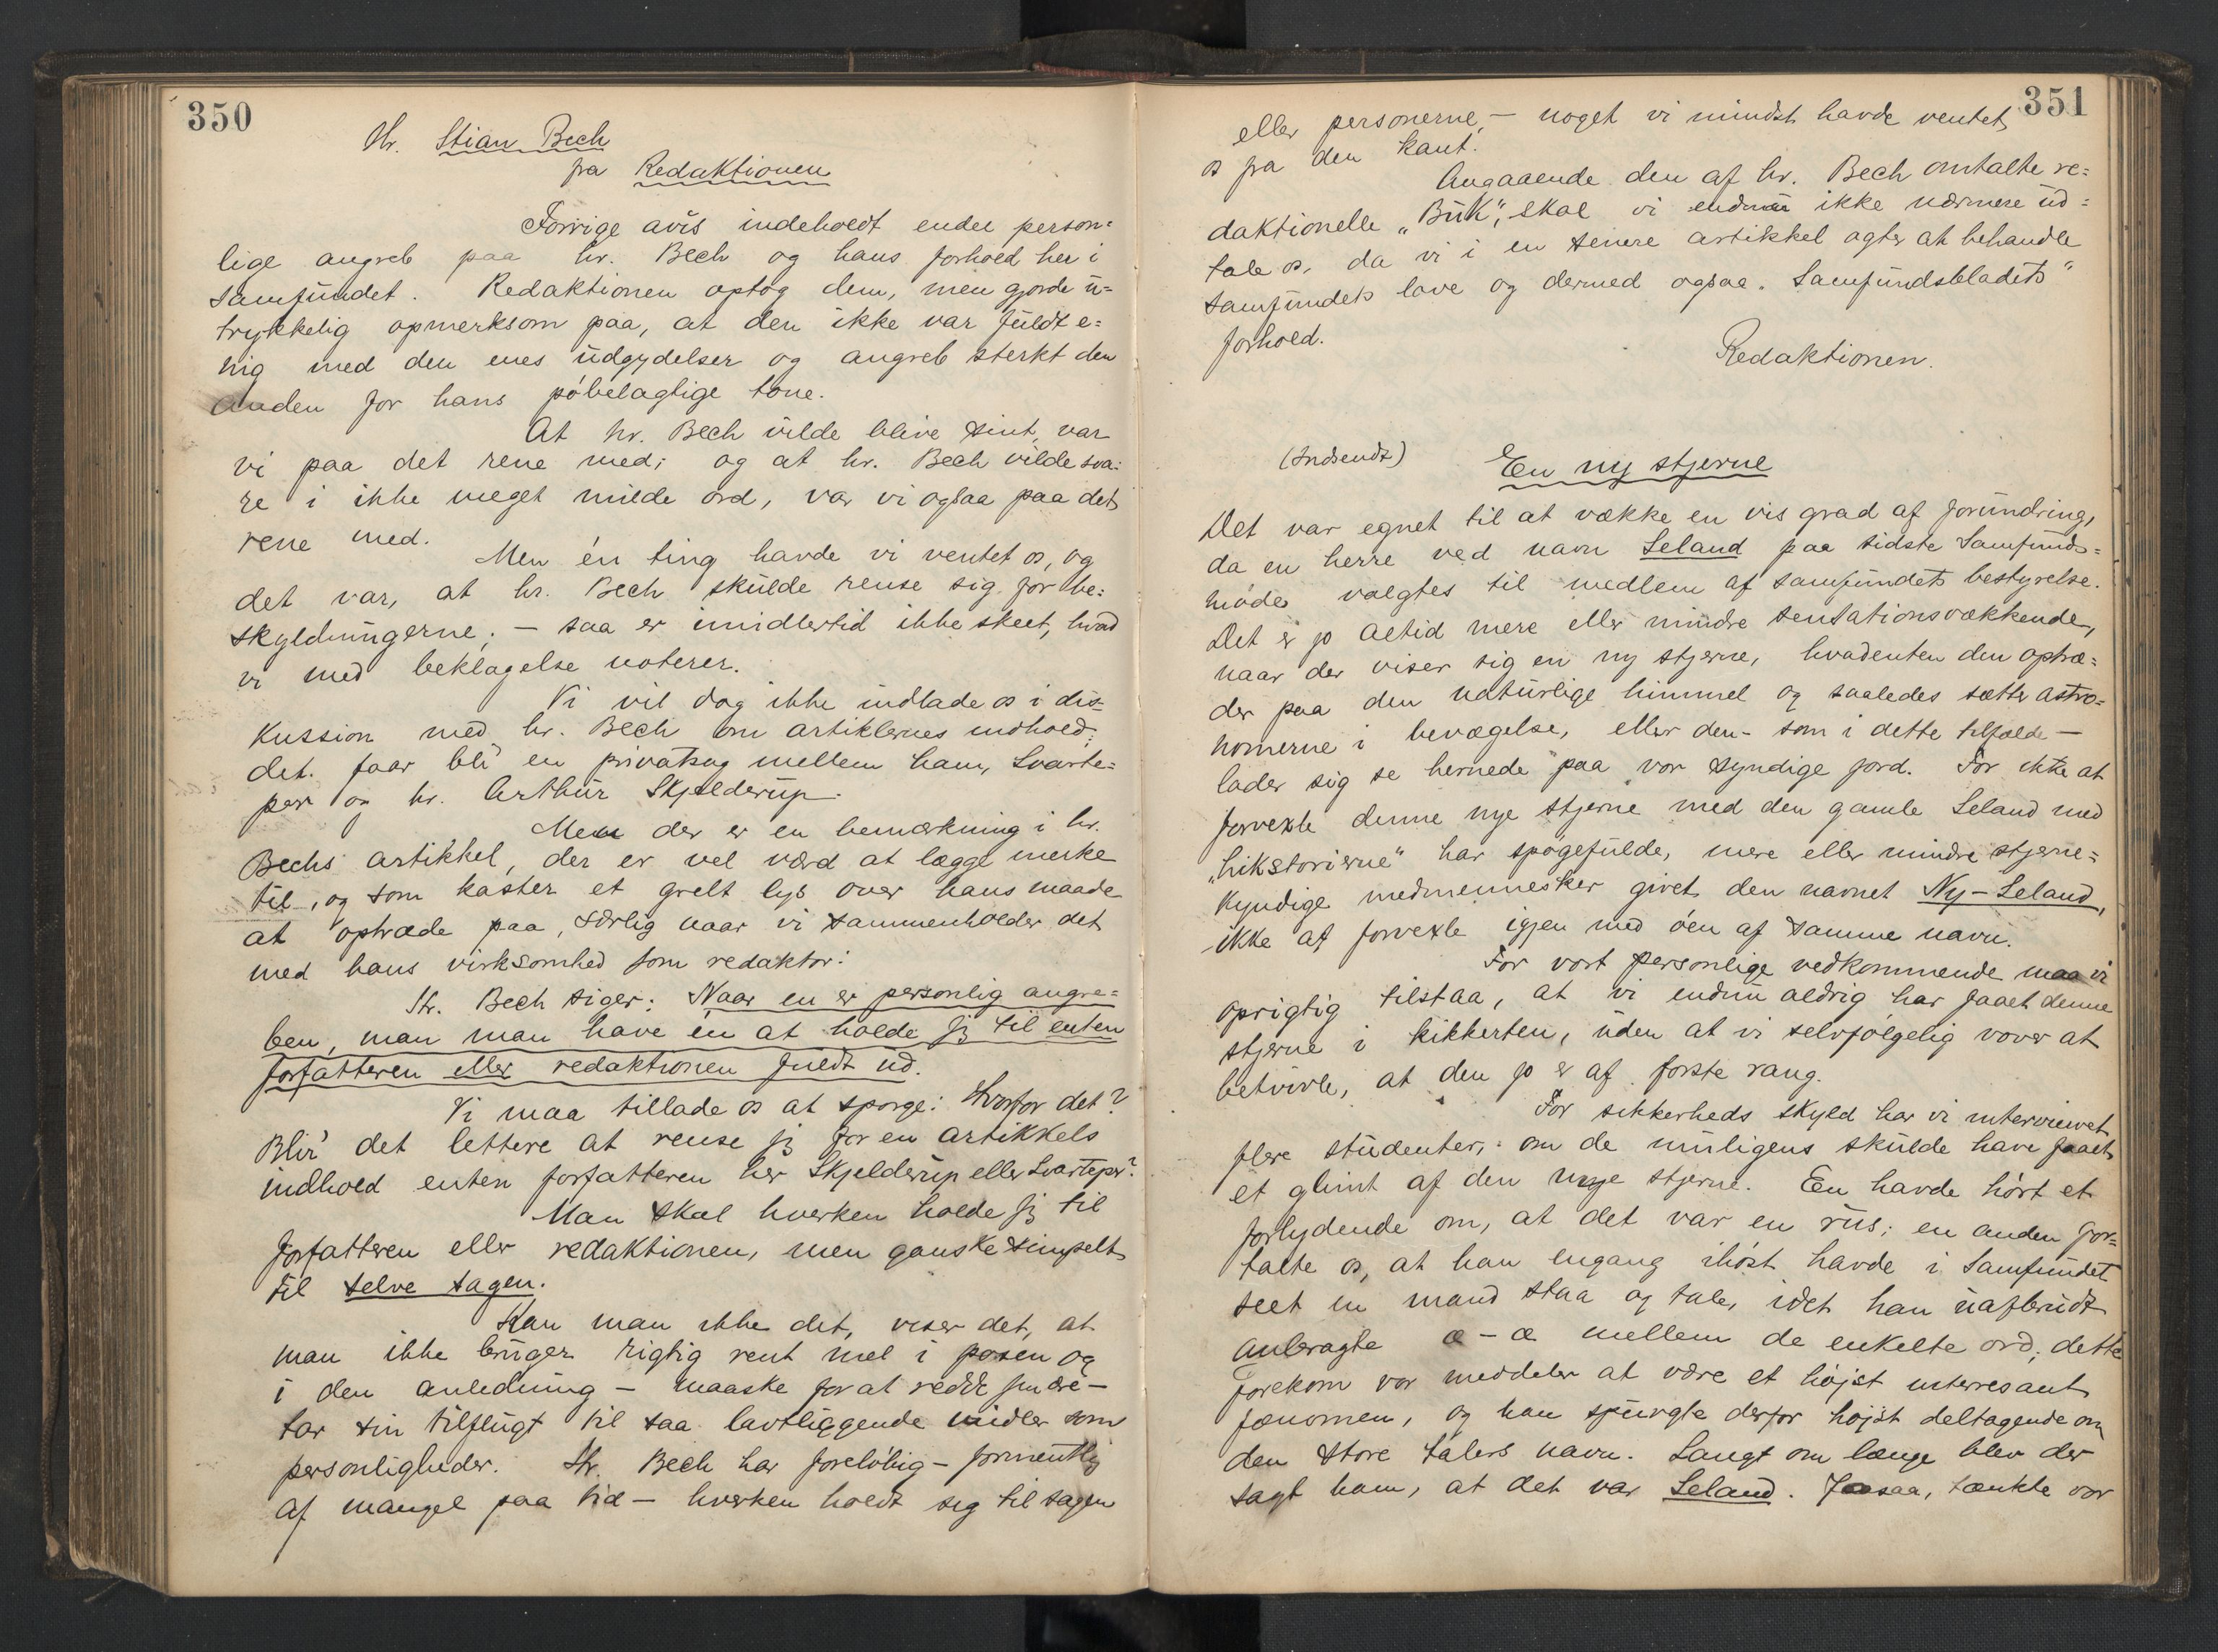 350
Hr. Stian Bech
fra Redaktionen
Forrige avis indeholdt endel person=
lige angreb paa hr. Bech og hans forhold her i
samfundet. Redaktionen optog dem, men gjorde u=
trykkelig opmerksom paa, at den ikke var fuldt e=
nig med den enes udgydelser og angreb sterkt den
anden for hans pöbelagtige tone.
At hr. Bech vilde blive sint, var
vi paa det rene med; og at hr. Bech vilde sva=
re i ikke meget milde ord, var vi ogsaa paa det
rene med.
Men én ting havde vi ventet os, og
det var, at hr. Bech skulde rense sig for be=
skyldningerne; — saa er imidlertid ikke skeet, hvad
vi med beklagelse noterer.
Vi vil dog ikke indlade os i dis=
kussion med hr. Bech om artiklernes indhold;
det faar bli' en privatsag mellem ham, Svarte=
per og hr. Arthur Skjelderup.
Men der er en bemærkning i hr.
Bechs artikkel, der er vel værd at lægge merke
til, og som kaster et grelt lys over hans maade
at optræde paa, særlig naar vi sammenholder det
med hans virksomhed som redaktör:
Hr. Bech siger: Naar en er personlig angre=
ben, maa man have en at holde sig til enten
forfatteren eller redaktionen fuldt ud.
Vi maa tillade os at spörge: Hvorfor det?
Blir' det lettere at rense sig for en artikkels
indhold enten forfatteren her Skjelderup eller Svarteper?
Man skal hverken holde sig til
forfatteren eller redaktionen, men ganske simpelt
til selve sagen.
Kan man ikke det, viser det, at
man ikke bruger rigtig rent mel i posen og
i den anledning — maaske for at redde sin ære —
tar sin tilflugt til saa lavtliggende midler som
personligheder. Hr. Bech har forelöbig — formentlig
af mangel paa tid — hverken holdt sig til sagen
351
eller personerne, — noget vi mindst havde ventet
os fra den kant.
Angaaende den af hr. Bech omtalte re=
daktionelle „Buk", skal vi endnu ikke nærmere ud=
tale os, da vi i en senere artikkel agter at behandle
samfundets love og dermed ogsaa „Samfundsbladets"
forhold.
Redaktionen.
(Indsendt)
En ny stjerne
Det var egnet til at vække en vis grad af forundring,
da en herre ved navn Leland paa sidste Samfunds=
möde valgtes til medlem af samfundets bestyrelse.
Det er jo altid mere eller mindre sensationsvækkende,
naar der viser sig en ny stjerne, hvadenten den optræ=
der paa den naturlige himmel og saaledes sætter astro=
nomerne i bevægelse, eller den - som i dette tilfælde —
lader sig se hernede paa vor syndige jord. For ikke at
forvexle denne nye stjerne med den gamle Leland med
„hikstorierne" har spögefulde, mere eller mindre stjerne=
kyndige medmennesker givet den navnet Ny-Leland,
ikke at forvexle igjen med öen af samme navn.
For vort personlige vedkommende maa vi
oprigtig tilstaa, at vi endnu aldrig har faaet denne
stjerne i kikkerten, uden at vi selvfölgelig vover at
betvivle, at den jo er af förste rang.
For sikkerheds skyld har vi interviewet
flere studenter, om de muligens skulde have faaet
et glimt af den nye stjerne. En havde hört et
forlydende om, at det var en rus; en anden for=
talte os, at han engang ihöst havde i Samfundet
seet en mand staa og tale, idet han uafbrudt
anbragte æ - æ mellem de enkelte ord; dette
forekom vor meddeler at være et höjst interresant
fænomen, og han spurgte derfor höjst deltagende om
den store talers navn. Langt om længe blev der
sagt ham, at det var Leland. Jasaa, tænkte vor